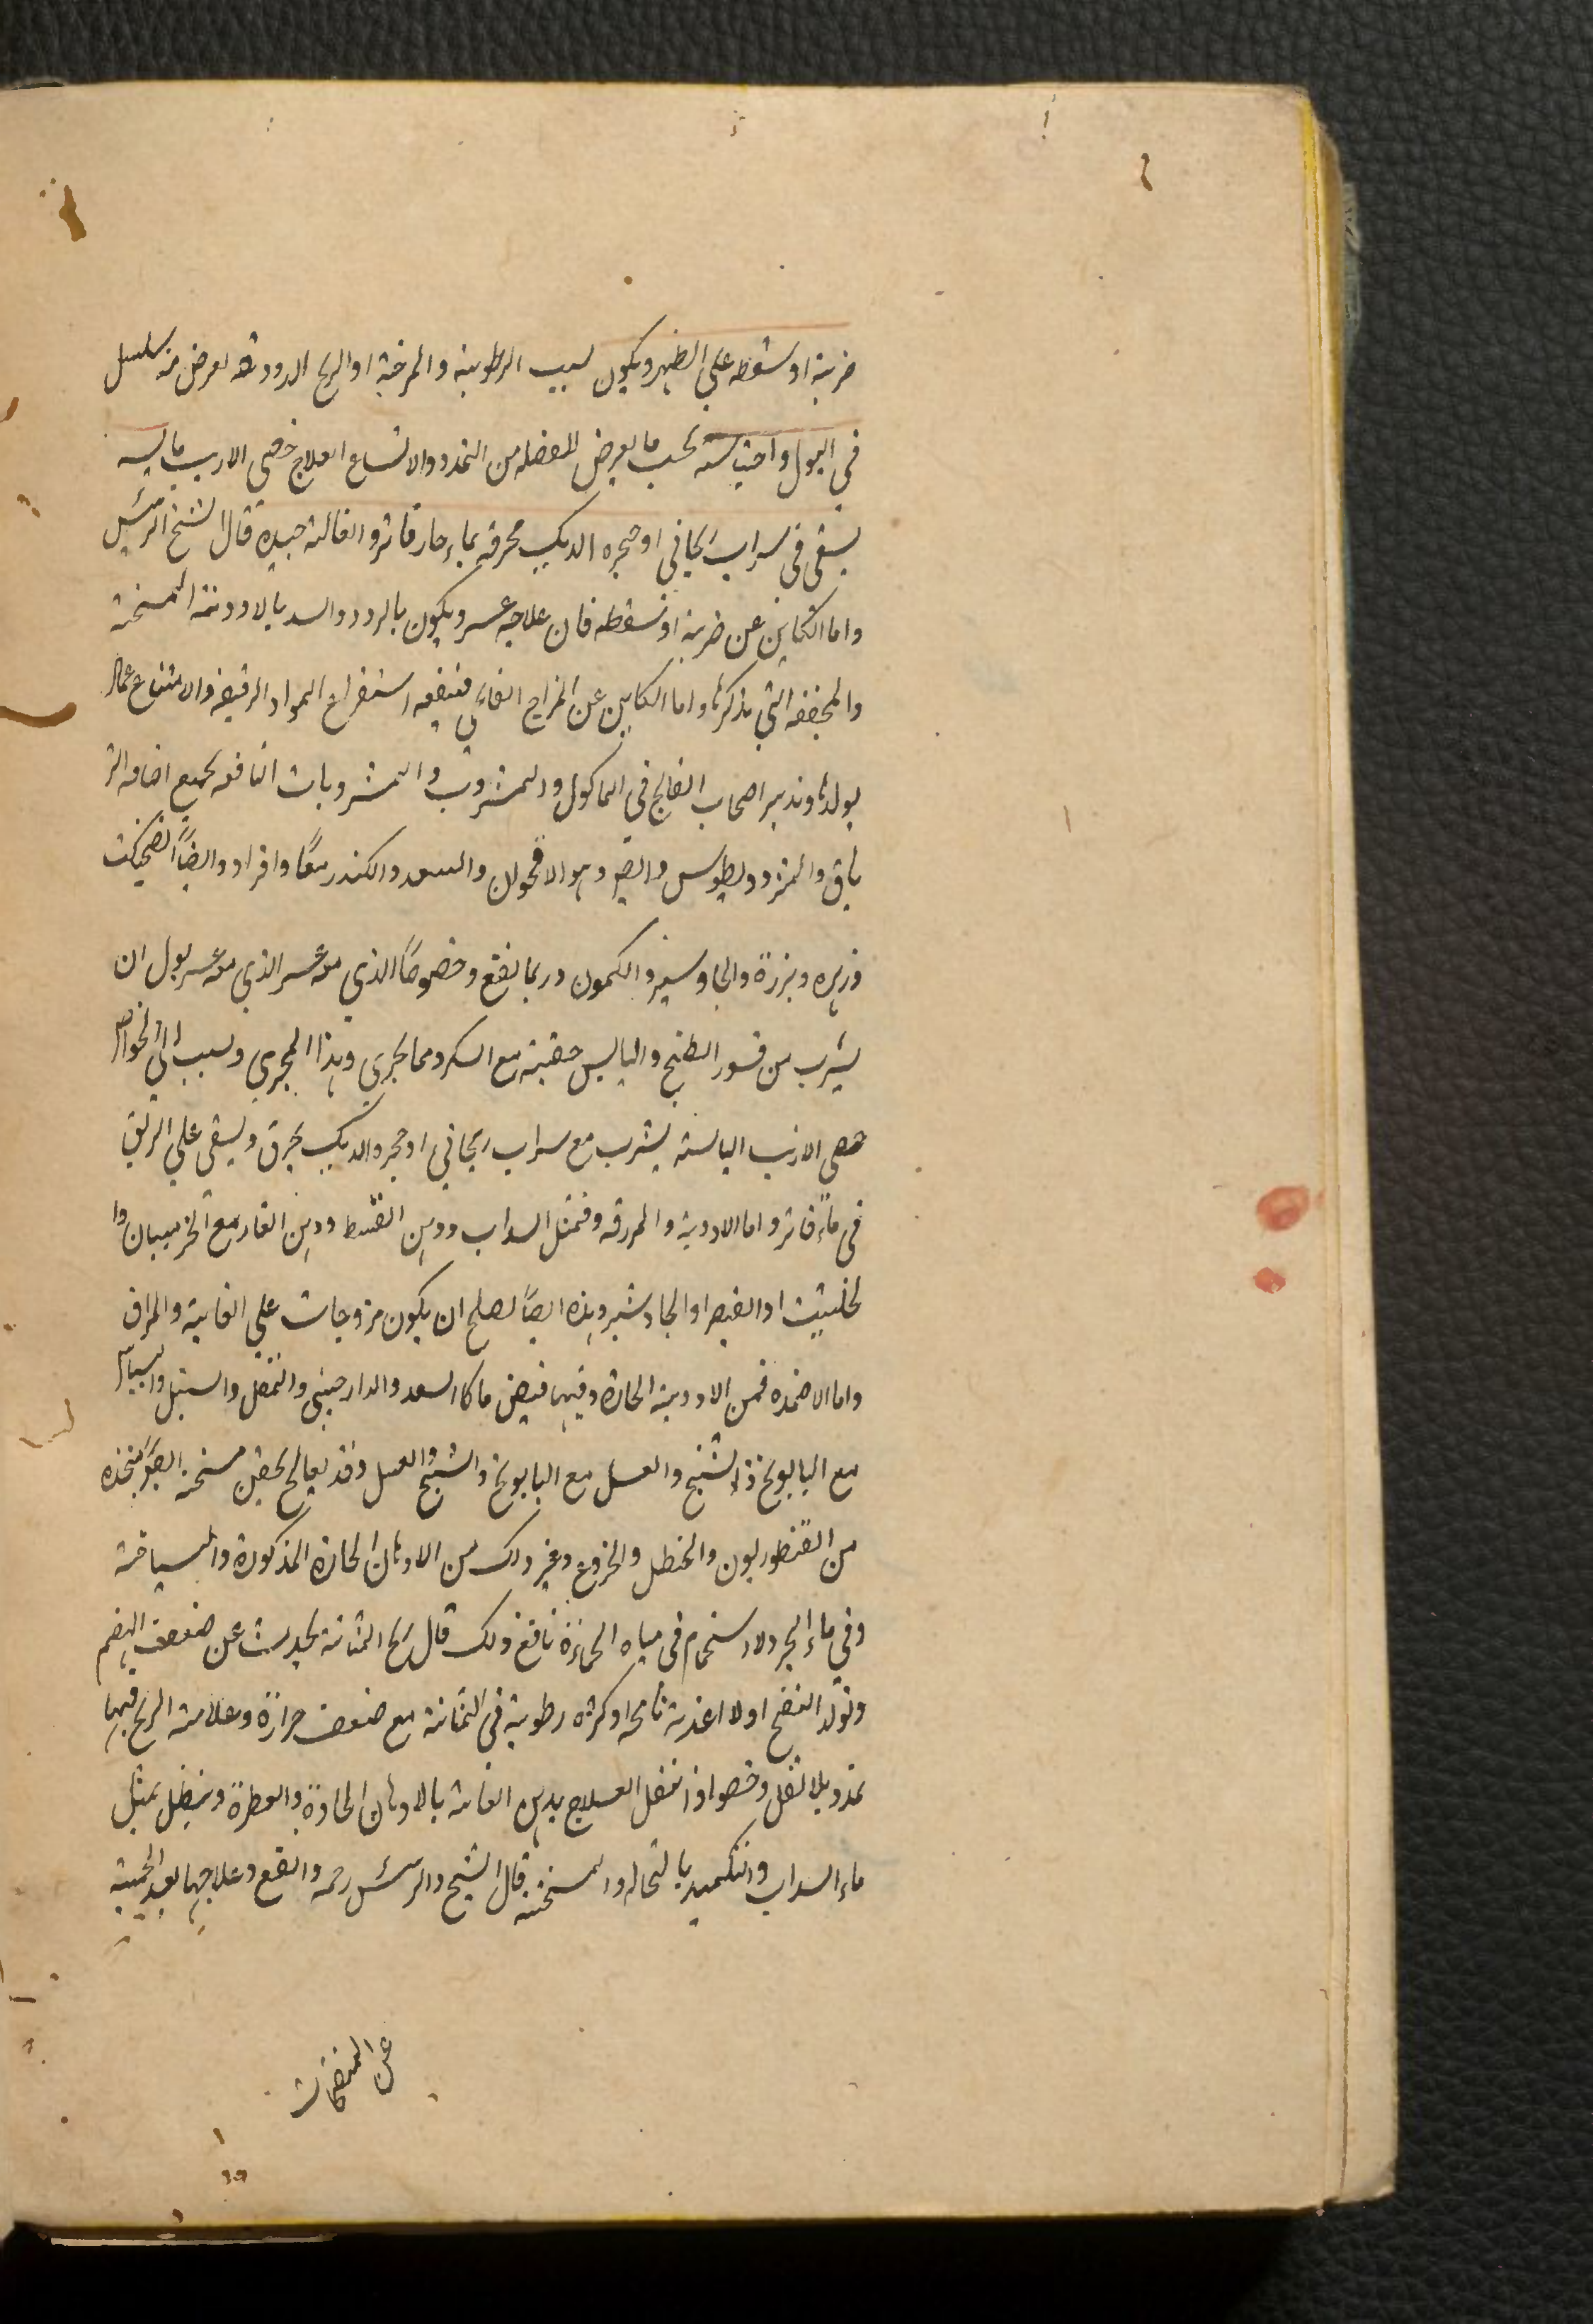 ضربة او سقطه علي الظهر ويكون لسبب الرطوبة والمرخية او الريح الدودة لعرض منه سلسل
في البول واحتباسته بحسب ما يعرض للعضله من التمدد والاتساع العلاج خصي الارنب يابسه
يسقى في سراب ريحاني او حنجره الديك محرقة بماء حار فاتر والغالية جيدة قال الشيخ الرئيس
واما الكاين عن ضربة او سقطه فان علاجه عسر ويكون بالردد والسد بالادوية المسخنة
والمجففه التي نذكرها واما الكاين عن المزاج الفالج فينفعه استفراغ المواد الرقيقه والامتناع عما
يولدها وتدبير اصحاب الفالج في الماكول والمشروب والمشروبات النافعه لجميع اصنافه التر
ياق والمثرودويطوس والصر وهو الاقحوان والسعد والكندر معًا وافراد وايضًا
وزيره وبزرة والجاوسير والكمون وربما نفع وخصوصًا الذي معه عسر الذي معه عسر بول ان
يشرب من قسور البطيخ واليابس حفنة مع السكر ومما يجري وهذا المجري وينسب الي الخواص
خصي الارنب اليابسة يشرب مع سراب ريحاني او حنجر والديك يحرق ويسقى علي الريق
في ماء فاتر واما الادوية والمزرقه فمثل السداب ودهن القسط ودهن الغار مع الخز ميبان وا
لحلتيت او الفيصر او الجاوشير وهذه ايضًا تصلح ان يكون مزوجات علي العانية والمراق
واما الاضمده فمن الادوية الحارة وفيها قبض ما كالسعد والدارصيني والمقل والسنبل والبسباس
مع البابونج والشيح والعسل مع البابونج والشيح والعسل وقد يعالج بحقن مسخنة ايضًا متخذه
من القنطوريون والحنظل والخروع وغير ذلك من الادهان الحارة المذكورة والسباحة
وفي ماء البحر والاستحمام في مياه الحمادة نافع ذلك قال ريح المثانة يحدث عن ضعف الهضم
وتولد النفخ اولا اغذية نافخه او كثرة رطوبة في المثانة مع ضعف حرارة وعلامة الريح فيها
تمدد بلا ثقل وخصوا اذا انتقل العلاج بدهن العانة بالادهان الحادة والعطرة وينطل بمثل
ماء السداب والتكميد بالنخاله والمسخنة قال الشيخ والرئيس رحمه والنفع وعلاجها بعد الحمية
عن المنفخات